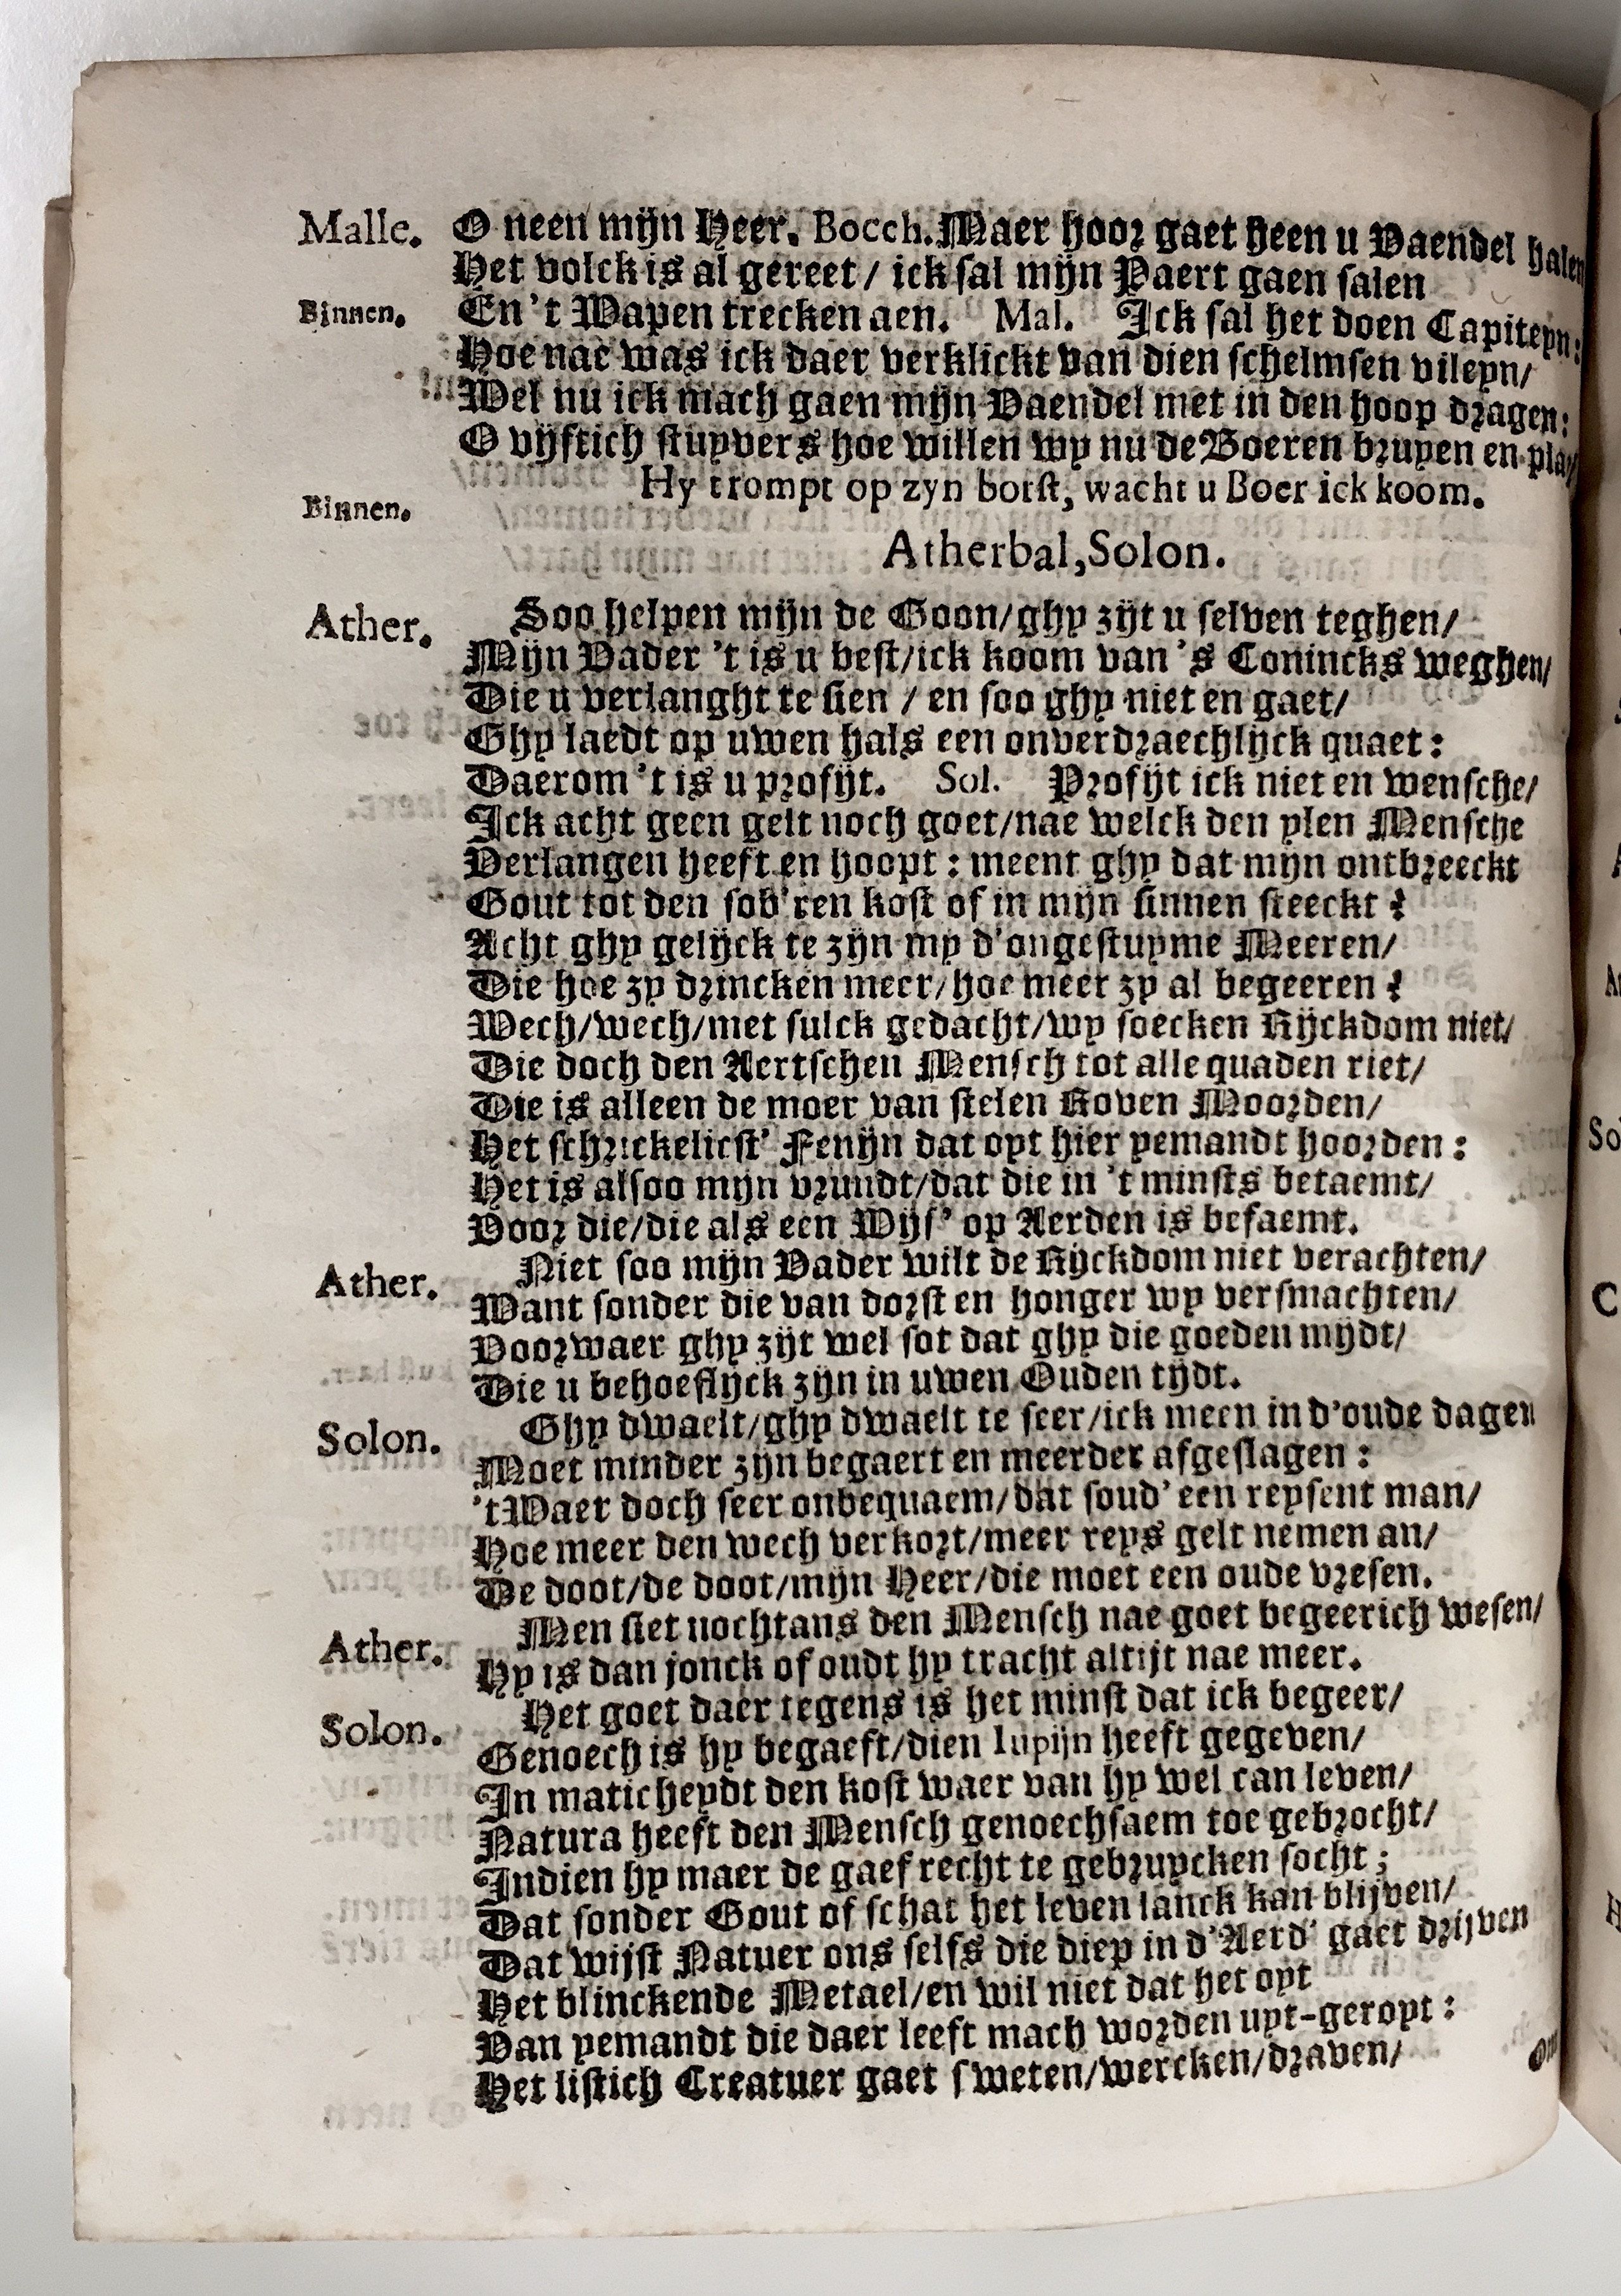 Malle. O neen mijn Heer. Bocch. Maer hoor gaet heen u Vaendel halen
Het volck is al gereet / ick sal mijn Paert gaen salen
Binnen. En 't Wapen trecken aen. Mal. Ick sal het doen Capiteyn:
Hoe nae was ick daer verklickt van dien schelmsen vileyn/
Wel nu ick mach gaen mijn Vaendel met in den hoop dragen:
O vijftich stuyvers hoe willen wy nu de Boeren bruyen en
Hy trompt op zyn borst, wacht u Boer ick koom.
Binnen.
Atherbal, Solon.
Ather. Soo helpen mijn de Goon/ghy zijt u selven teghen/
Mijn Vader 't is u best/ick koom van 's Conincks weghen/
Die u verlanght te sien / en soo ghy niet en gaet/
Ghy laedt op uwen hals een onverdraechlijck quaet:
Daerom 't is u profijt. Sol. Profijt ick niet en wensche/
Ick acht geen gelt noch goet/nae welck den ylen Mensche
Verlangen heeft en hoopt: meent ghy dat mijn ontbreeckt
Gout tot den sob'ren kost of in mijn sinnen steeckt?
Acht ghy gelijck te zijn my d'ongestuyme Meeren/
Die hoe zy drincken meer/hoe meer zy al begeeren?
Wech/wech/met sulck gedacht/wy soecken Rijckdom niet/
Die doch den Aertschen Mensch tot alle quaden riet/
Die is alleen de moer van stelen Roven Moorden/
Het schrickelicst' Fenijn dat oyt hier yemandt hoorden:
Het is alsoo mijn vrundt/dat die in 't minsts betaemt/
Voor die/die als een Wijs' op Aerden is befaemt.
Ather. Niet soo mijn Vader wilt de Rijckdom niet verachten/
Want sonder die van dorst en honger wy versmachten/
Voorwaer ghy zijt wel sot dat ghy die goeden mydt/
Die u behoeflijck zijn in uwen Ouden tijdt.
Solon. Ghy dwaelt/ghy dwaelt te seer/ick meen in d'oude dagen
Moet minder zijn begaert en meerder afgeslagen:
't Waer doch seer onbequaem/dat soud' een reysent man/
Hoe meer den wech verkort/meer reys gelt nemen an/
De doot/de doot/mijn Heer/die moet een oude vresen.
Ather. Men siet nochtans den Mensch nae goet begeerich wesen/
Hy is dan jonck of oudt hy tracht altijt nae meer.
Solon. Het goet daer tegens is het minst dat ick begeer/
Genoech is hy begaeft/dien Iupijn heeft gegeven/
In maticheydt den kost waer van hy wel can leven/
Natura heeft den Mensch genoechsaem toe gebrocht/
Indien hy maer de gaef recht te gebruycken socht;
Dat sonder Gout of schat het leven lanck kan blijven/
Dat wijst Natuer ons selfs die diep in d'Aerd' gaet drijven
Het blinckende Metael/en wil niet dat het oyt
Van yemandt die daer leeft mach worden uyt-geroyt:
Het listich Creatuer gaet sweten/wercken/draven/